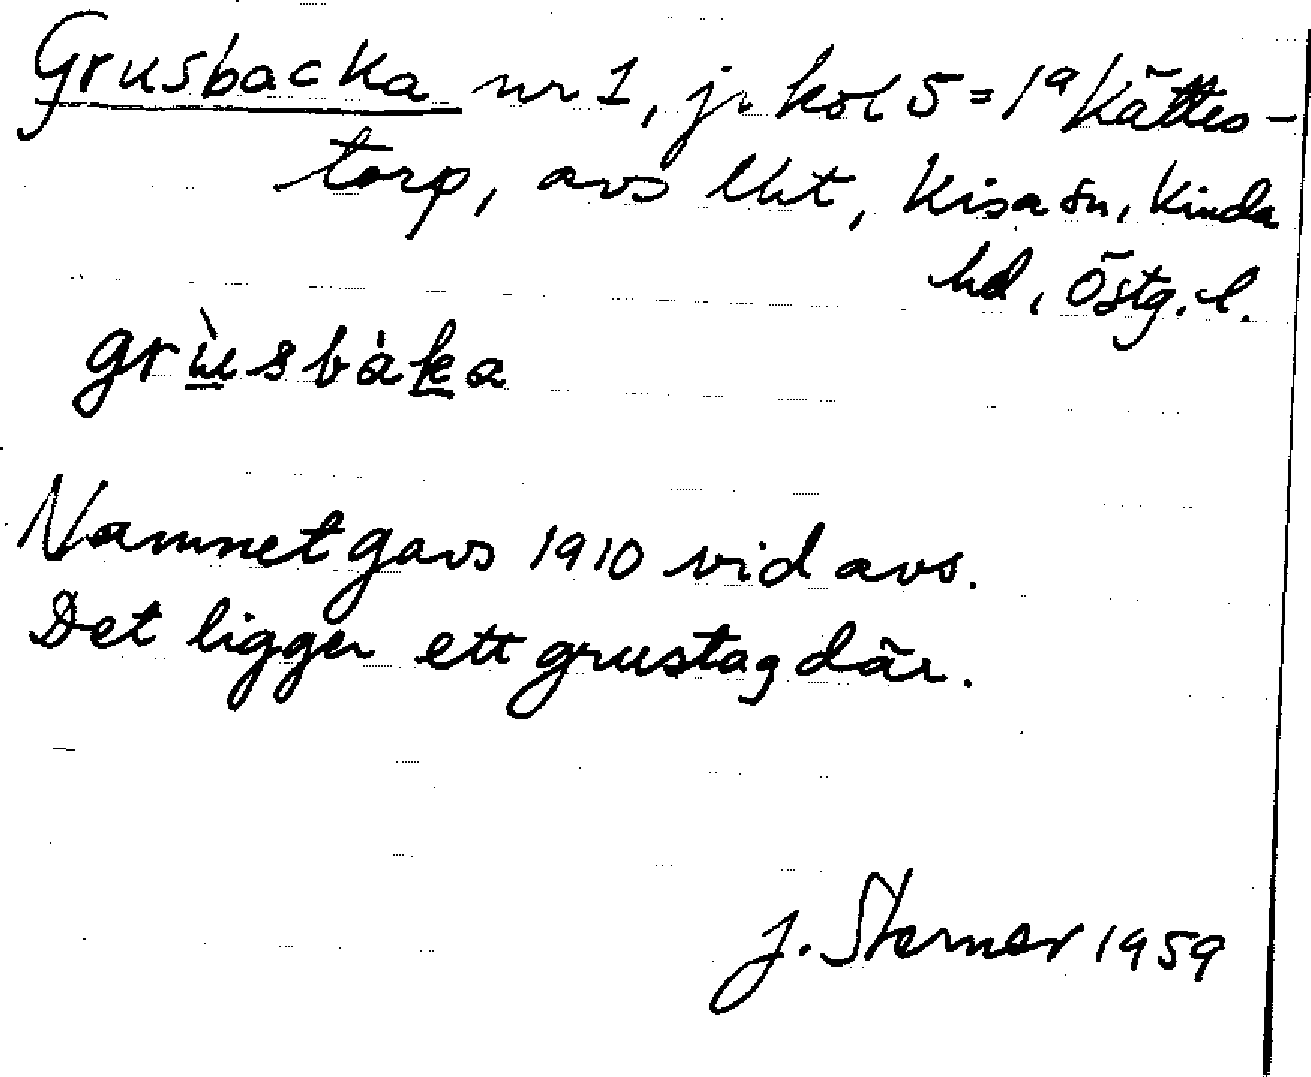 Grusbacka nr 1, j. kol 5 = 1ª Kättes-
torp, avs lht, Kisa sn, Kinda
hd, Östg. l.
grùsbàka
Namnet gavs 1910 vid avs.
Det ligger ett grustag där.
J. Sterner 1959